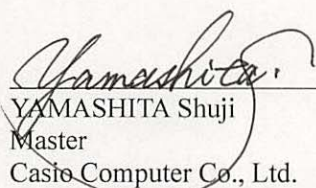 Yamashita.
YAMASHITA Shuji
Master
Casio Computer Co., Ltd.